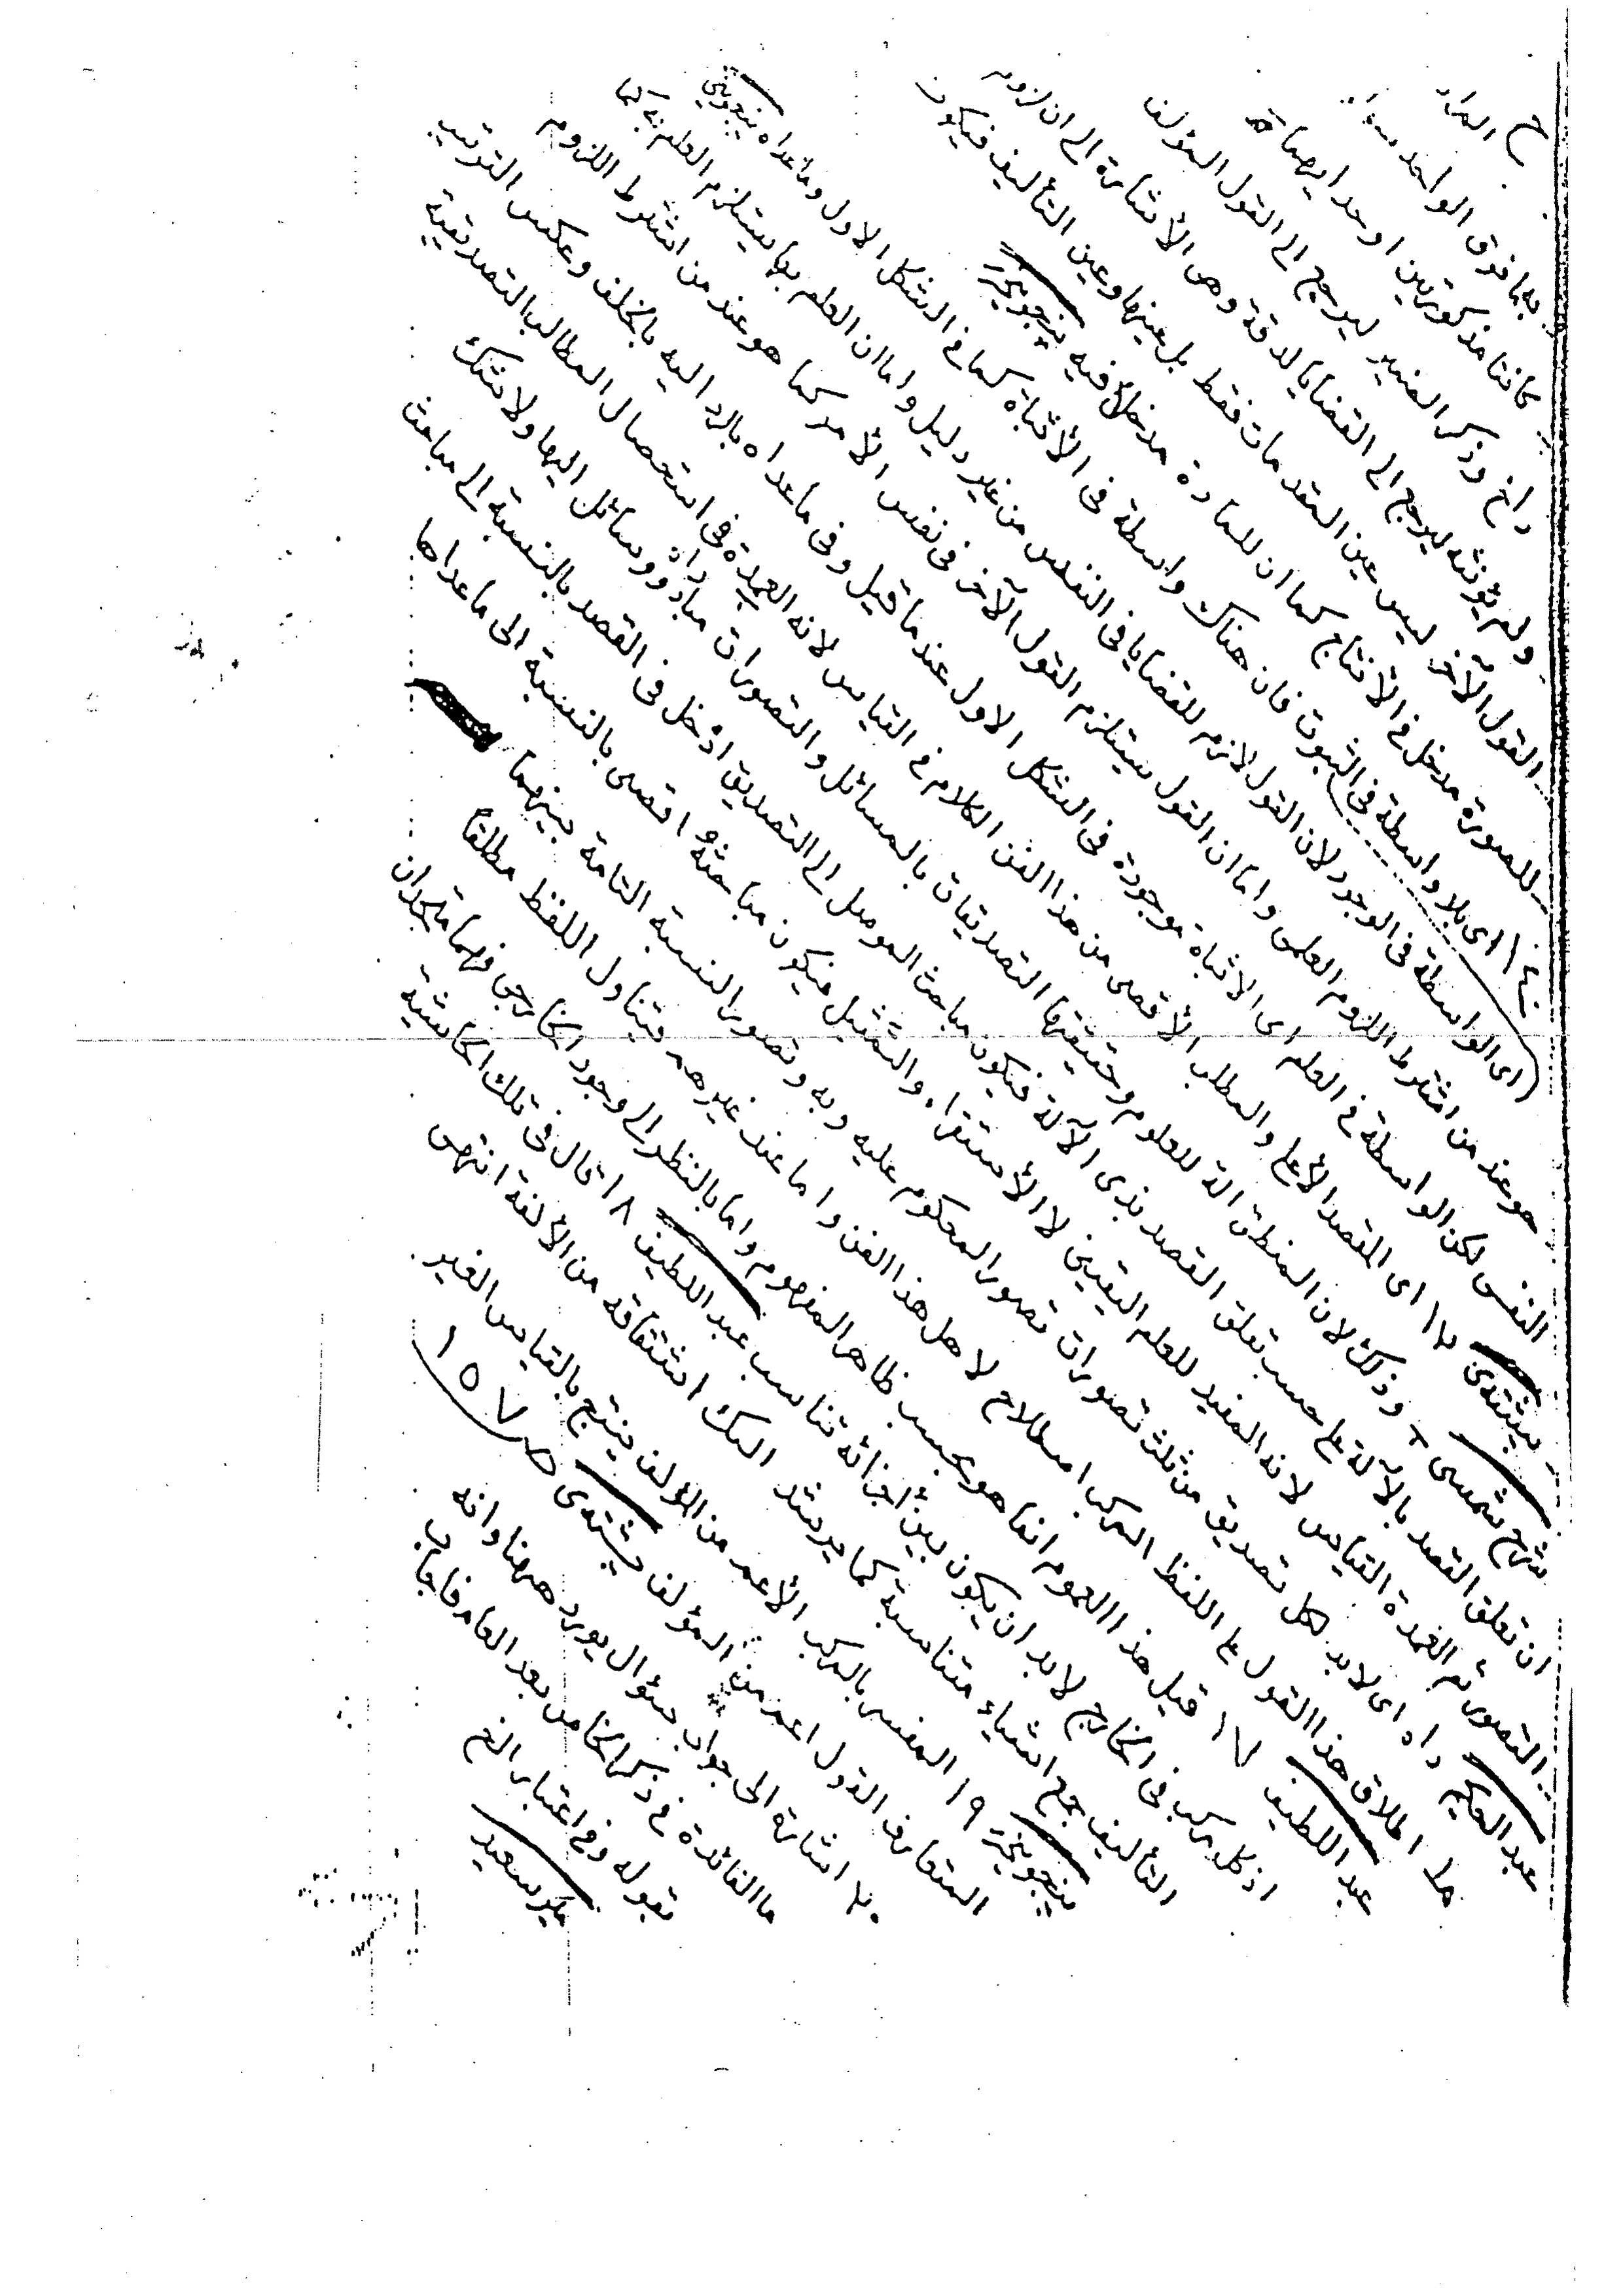 ح المراد
بما فوق الواحد سواء
كانتا مذكورتين او احديهما
وذكر الضمير ليرجع الى القول المؤلف
ولم يؤنثه ليرجع الى القضايا لدقة وهى الأشارة الى ان لزوم
القول الآخر ليس عين المقدمات فقط بل عينها وعين التأليف فيكون
للصورة مدخل فى الأنتاج كما ان للمادة مدخلاً فيه پنجوينى
١٤ اى بلا واسطة فى الثبوت فان هناك واسطة فى الأثبات كما فى الشكل الاول وماعداه پنجوينى
اى الواسطة فى الوجود لان القول لازم للقضايا فى النفس من غير دليل واما ان العلم بها يستلزم العلم به كما
هو عند من اشترط اللزوم العلمى واما ان القول يستلزم القول الآخر فى نفس الأمر كما هو عند من اشترط اللزوم
النفسى لكن الواسطة فى العلم اى الاثبات موجودة فى الشكل الاول عندما قيل وفى ماعداه بالرد اليه بالخلف وعكس الترتيب
اى المقصد الأعلى والمطلب الأقصى من هذا الفن الكلام فى القياس لانه العمدة فى استحصال المطالب التصديقية
شرح شمسى وذلك لان المنطق الة للعلوم وحقيقتها التصديقات بالمسائل والتصورات مباد ووسائل اليها ولا شك
ان تعلق القصد بالآلة على حسب تعلق القصد بذى الآلة فيكون مباحث الموصل الى التصديق ادخل فى القصد بالنسبة الى مباحث
التصور ثم العمدة القياس لانه المفيد للعلم اليقينى لا الأستقراء والتمثيل فيكون مباحثه اقصى بالنسبة الى ماعداها
عبد الحكيم اى لابد لكل تصديق من ثلث تصورات تصور المحكوم عليه وبه وتصور النسبة التامة بينهما
اطلاق هذا القول على اللفظ المركب اصطلاح لاهل هذا الفن واما عند غيرهم فيتناول اللفظ مطلقاً
عبد اللطيف ١٧ قيل هذا العموم انما هو بحسب ظاهر المفهوم واما بالنظر الى وجود الخارجى فهما متحدان
اذ كل مركب فى الخارج لابد ان يكون بين اجزائه تناسب عبد اللطيف ١٨ قال فى تلك الحاشية
التأليف جمع اشياء متناسبة كما يرشد اليك اشتقاقه من الألفة انتهى
پنجوينى ١٩ المفسر بالمركب الأعم من المؤلف ينتج بالقياس الغير
المتعارف القول اعم من المؤلف ص ١٥٧
٢٠ اشارة الى جواب سؤال يورد ههنا وانه
ما الفائدة فى ذكر الخاص بعد العام فاجاب
بقوله وفى اعتبار الخ
مير سعيد